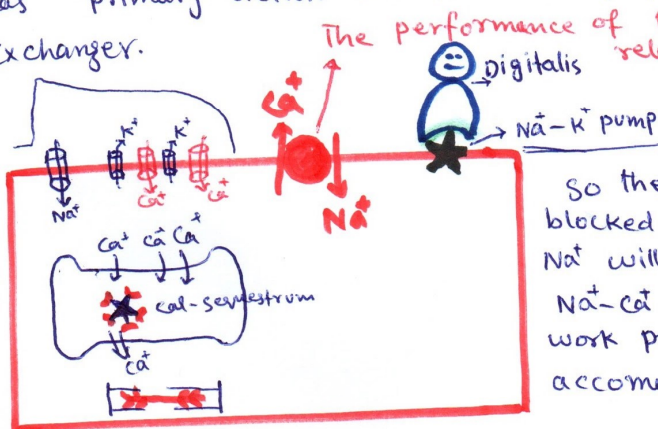 as primary
Exchanger.
The performance of
rel
Digitalis
Na⁺-K⁺ pump
Ca⁺
Na⁺
K⁺ K⁺
Na⁺ Ca⁺ Ca⁺
Ca⁺ Ca⁺ Ca⁺
cal-sequestrum
Ca⁺
So the
blocked
Na⁺ will
Na⁺-Ca⁺
work p
accome